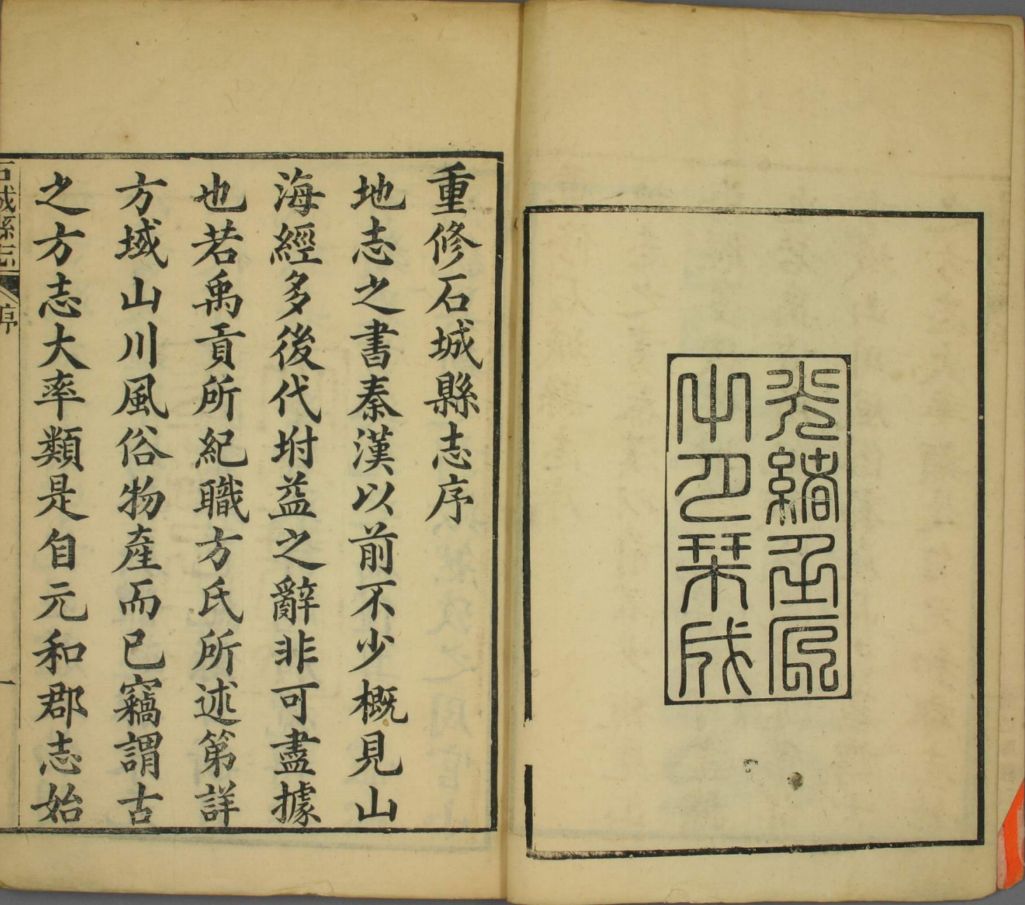 光緒壬辰
月栞成
重修石城縣志序
地志之書秦漢以前不少概見山
海經多後代坿益之辭非可盡據
也若禹貢所紀職方氏所述第詳
方域山川風俗物產而已竊謂古
之方志大率類是自元和郡志始
石城縣志 序 一